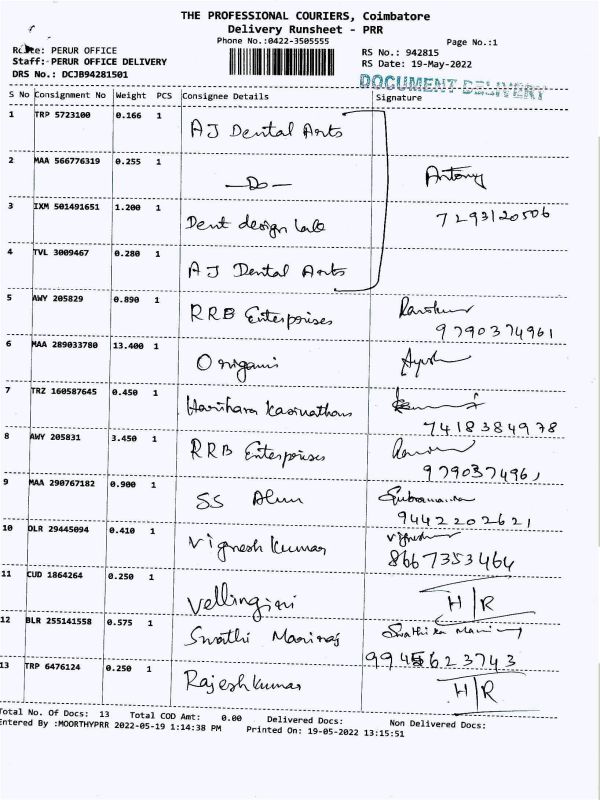 THE PROFESSIONAL COURIERS, Coimbatore
Delivery Runsheet - PRR
Phone No.:0422-3505555
Page No.:1
Route: PERUR OFFICE
RS No.: 942815
Staff: PERUR OFFICE DELIVERY
RS Date: 19-May-2022
DRS No.: DCJB94281501
DOCUMENT DELIVERY
S No Consignment No Weight PCS Consignee Details Signature
1 TRP 5723100 0.166 1 AJ Dental Arts
2 MAA 566776319 0.255 1 —Do— Antony
3 IXM 501491651 1.200 1 Dent design Lab 7293120506
4 TVL 3009467 0.280 1 AJ Dental Arts
5 AWY 205829 0.890 1 RRB Enterprises
9790374961
6 MAA 289033780 13.400 1 Origami
7 TRZ 160587645 0.450 1 Harihara Kasinathan
7418384978
8 AWY 205831 3.450 1 RRB Enterprises
9790374961
9 MAA 290767182 0.900 1 SS
9442202621
10 DLR 29445094 0.410 1 Vignesh Kumar Vignesh
8667353464
11 CUD 1864264 0.250 1 Vellingiri H/R
12 BLR 255141558 0.575 1 Swathi Mariraj
9945623743
13 TRP 6476124 0.250 1 Rajeshkumar H/R
Total No. Of Docs: 13 Total COD Amt: 0.00 Delivered Docs: Non Delivered Docs:
Entered By :MOORTHYPRR 2022-05-19 1:14:38 PM Printed On: 19-05-2022 13:15:51